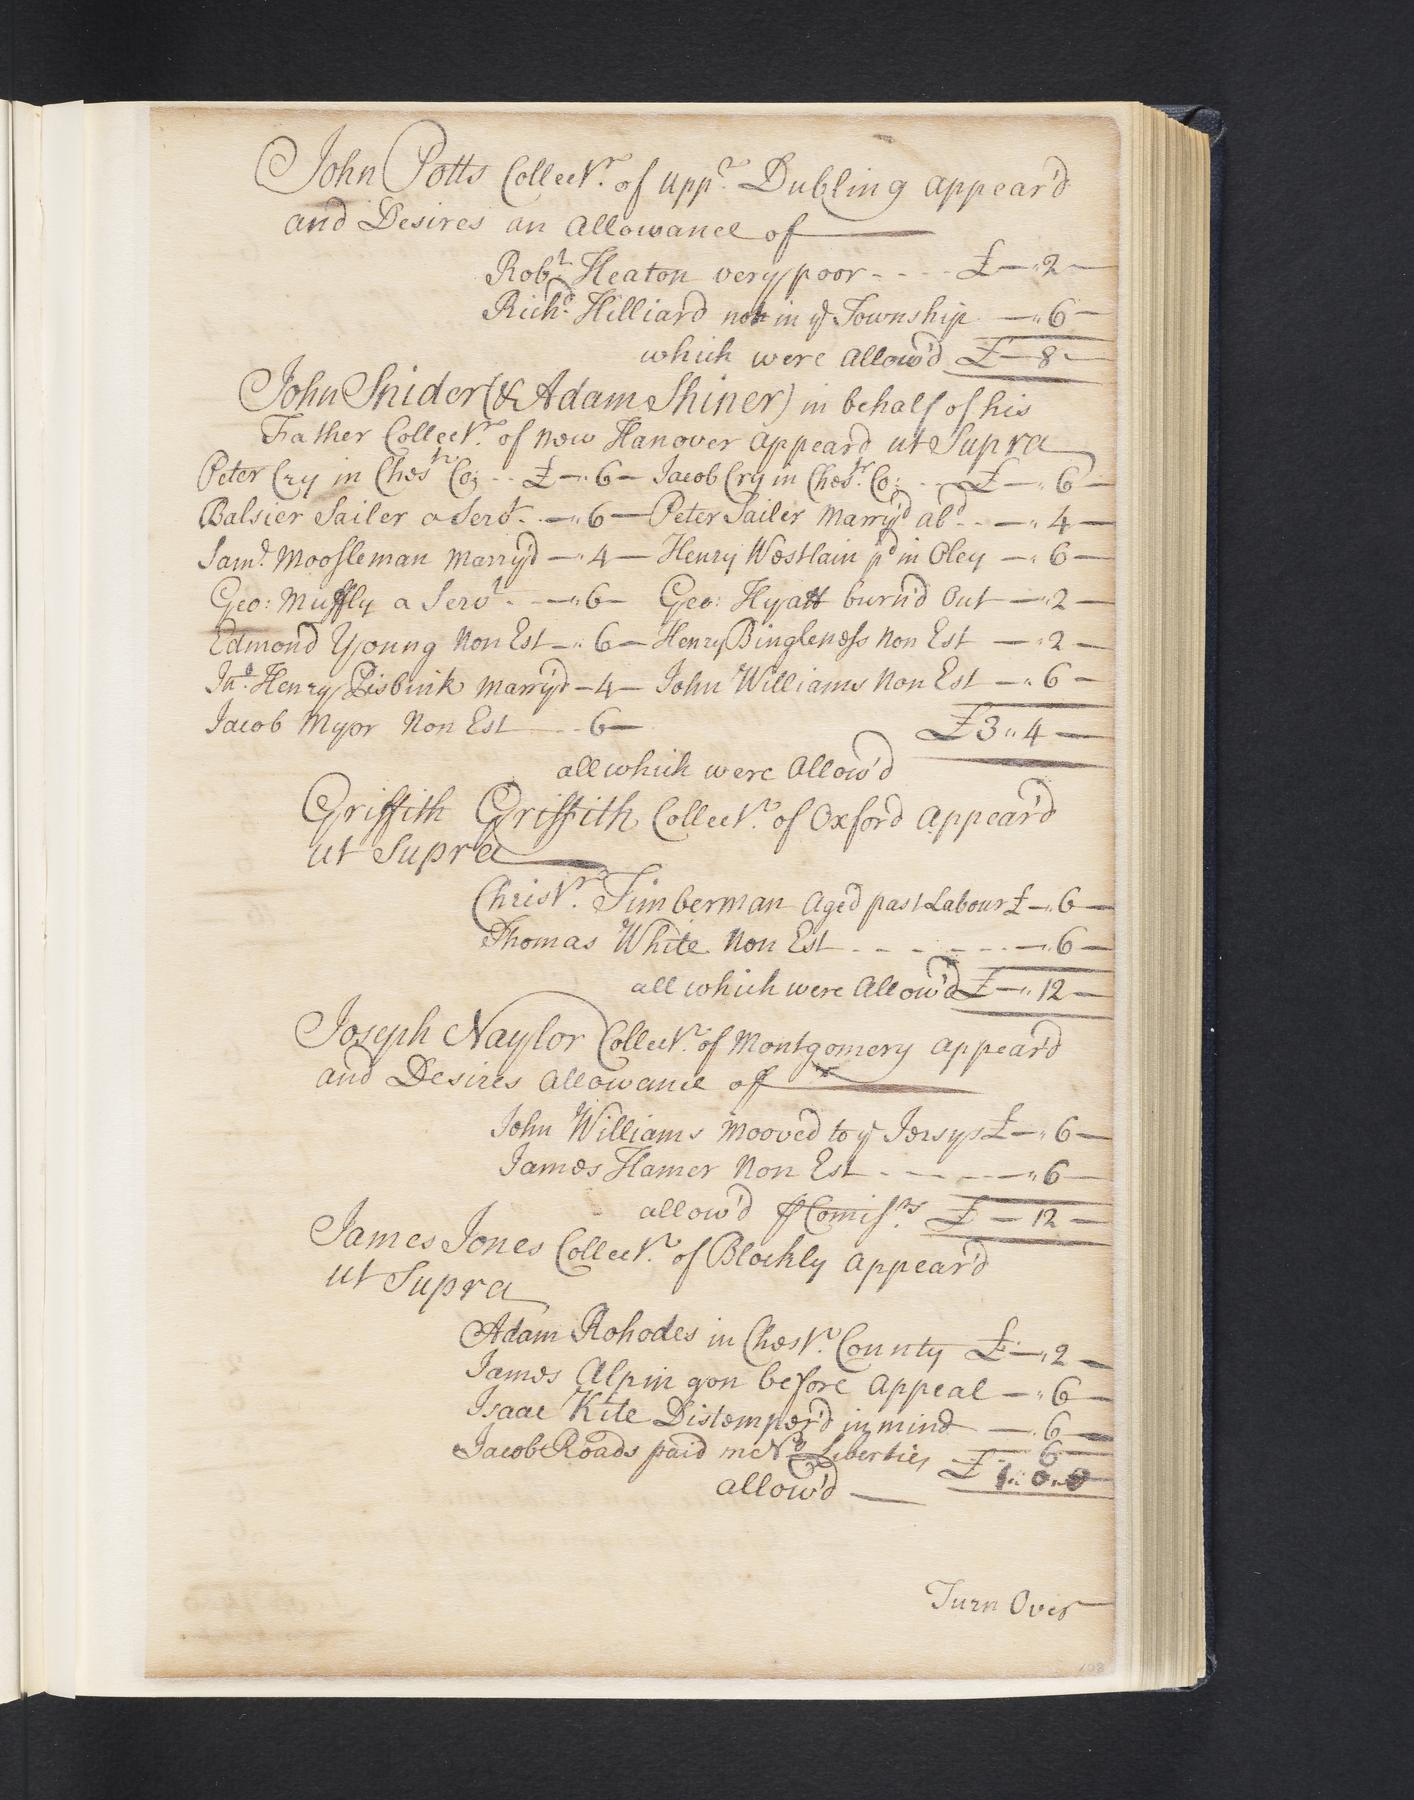 John Potts Collect.r of upp.r Dubling appear'd
and Desires an allowance of
Rob.t Heaton very poor - - - - £ — " 2 —
Rich.d Hilliard not in ye Township — " 6 —
which were allow'd £ — 8 —
John Snider (& Adam Shiner) in behalf of his
Father Collect.r of new Hanover appear'd ut Supra
Peter Cry in Ches.tr Co: - - £ — " 6 — Jacob Cry in Ches.tr Co: - - £ — " 6 —
Balsier Sailer a Serv.t - — " 6 — Peter Sailer Marry'd ab.d - - — " 4 —
Sam.l Moosleman marry'd — " 4 — Henry Westlain p.d in Oley — " 6 —
Geo: Muffly a Serv.t - — " 6 — Geo: Hyatt burn'd Out — " 2 —
Edmond Young Non Est — " 6 — Henry Bingleness Non Est — " 2 —
Jn.o Henry Lisbink marry'd — 4 — John Williams Non Est — " 6 —
Jacob Myor Non Est — - - 6 — £ 3 " 4 —
all which were allow'd
Griffith Griffith Collect.r of Oxford appear'd
ut Supra
Christ.r Timberman aged past Labour £ — " 6 —
Thomas White Non Est - - - - - - — " 6 —
all which were allow'd £ — " 12 —
Joseph Naylor Collect.r of Montgomery appear'd
and Desires allowance of
John Williams mooved to ye Jersys £ — " 6 —
James Hamer Non Est - - - - — " 6 —
allow'd ⅌ Comis.rs £ — 12 —
James Jones Collect.r of Blockly appear'd
ut Supra
Adam Rohodes in Chest.r County £ — " 2 —
James Alpin gon before appeal — " 6 —
Isaac Kite Distemper'd in mind — " 6 —
Jacob Roads paid in ye No Liberties — - 6 —
allow'd — £ 1 " 0 " 0
Turn Over
108